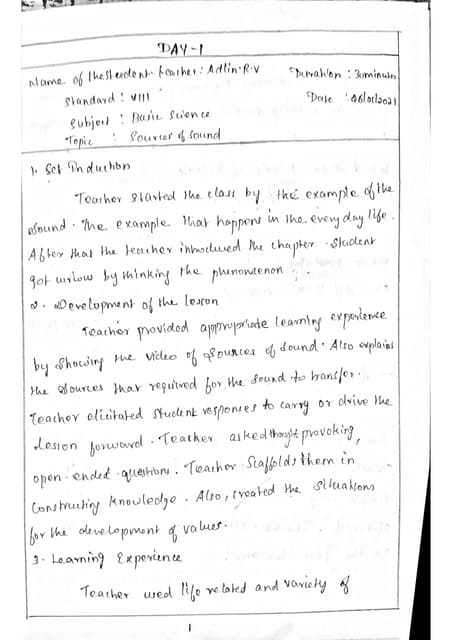 DAY-1
Name of the student teacher: Adlin.R.V Duration: 30minutes
Standard: VIII Date:
Subject: Basic Science
Topic : Sources of sound
1. Set Induction
Teacher started the class by the example of the
sound. The example that happens in the every day life.
After that the teacher introduced the chapter. Student
got by thinking the phenomenon.
2. Development of the lesson
Teacher provided appropriate learning experience
by showing the video of sources of sound. Also explains
the sources that required for the sound to transfer.
Teacher elicitated student responses to carry or drive the
lesson forward. Teacher asked thought provoking,
open-ended questions. Teacher scaffolds them in
constructing knowledge. Also, created the situations
for the development of values.
3. Learning Experience
Teacher used life related and variety of
1